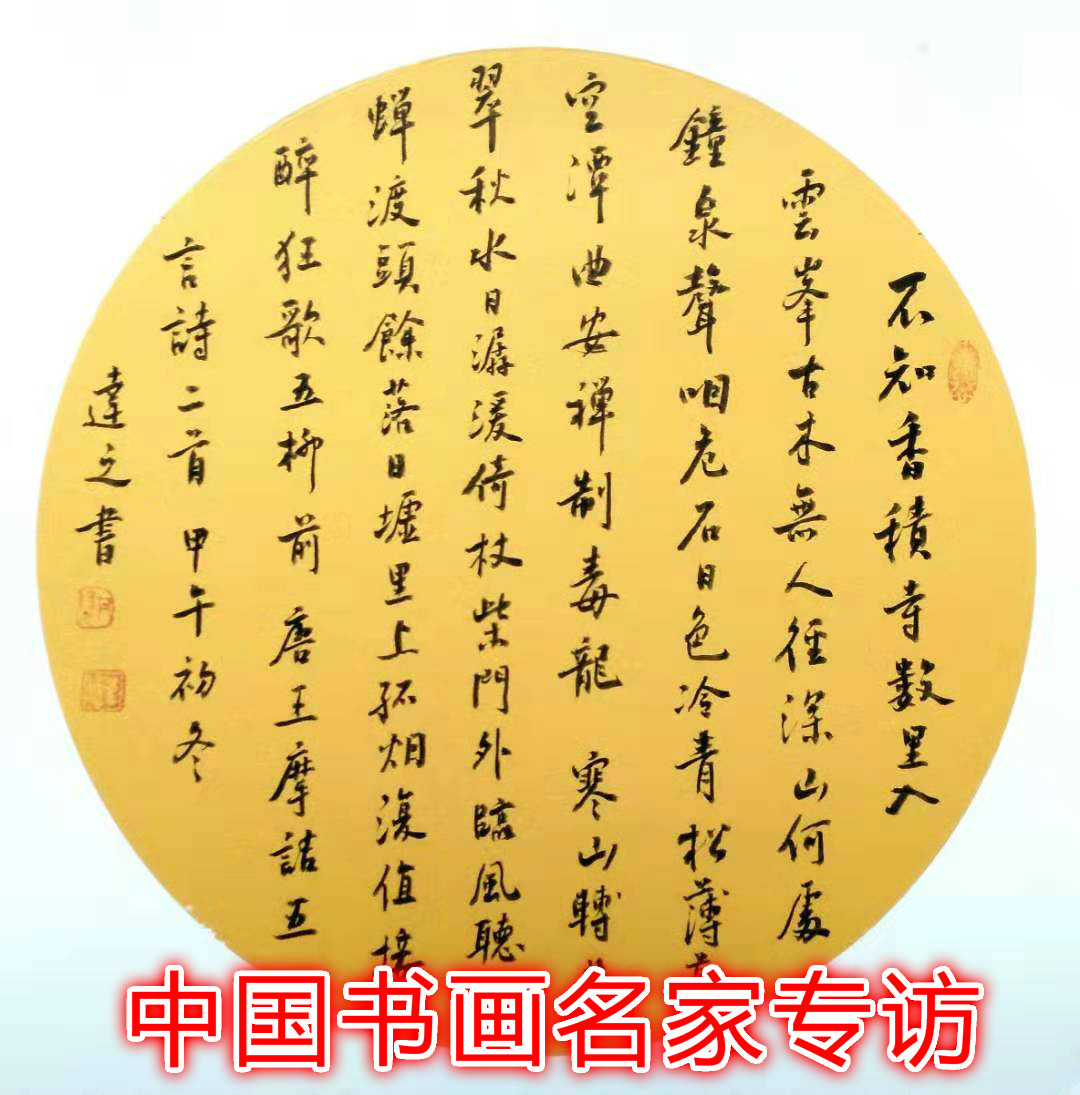 不知香積寺數里入
雲峯古木無人徑深山何處
鐘泉聲咽危石日色冷青松薄
空潭曲安禅制毒龍 寒山轉
翠秋水日潺湲倚杖柴門外臨風聴
蝉渡頭餘落日墟里上孤烟復值接
醉狂歌五柳前 唐王摩詰五
言詩二首 甲午初冬
達之書
中国书画名家专访